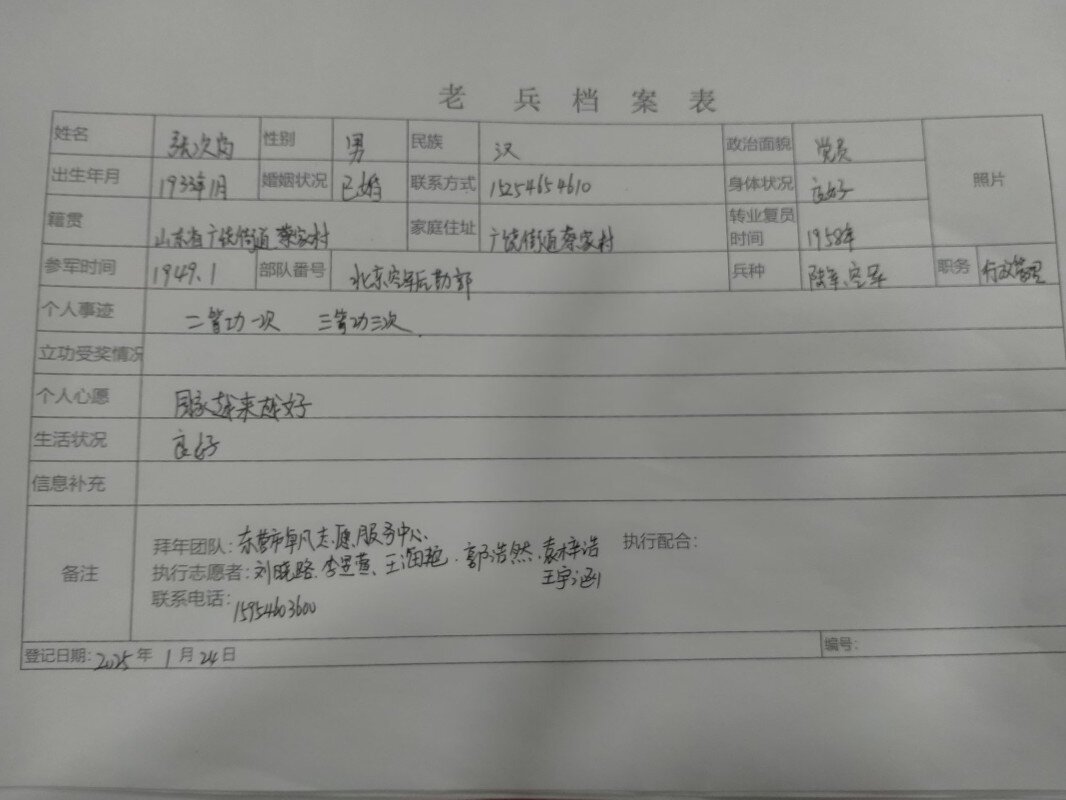 老 兵 档 案 表
姓名 张次岗 性别 男 民族 汉 政治面貌 党员 照片
出生年月 1933年1月 婚姻状况 已婚 联系方式 15254654610 身体状况 良好
籍贯 山东省广饶街道蔡家村 家庭住址 广饶街道蔡家村 转业复员时间 1958年
参军时间 1949.1 部队番号 北京空军后勤部 兵种 陆军、空军 职务 行政管理
个人事迹 二等功一次 三等功三次.
立功受奖情况
个人心愿 国家越来越好
生活状况 良好
信息补充
备注
拜年团队:东营市卓凡志愿服务中心 执行配合:
执行志愿者:刘晓路、李昱萱、王海艳、郭浩然、袁梓浩
王宇涵
联系电话:15954603600
登记日期:2025年1月24日 编号: